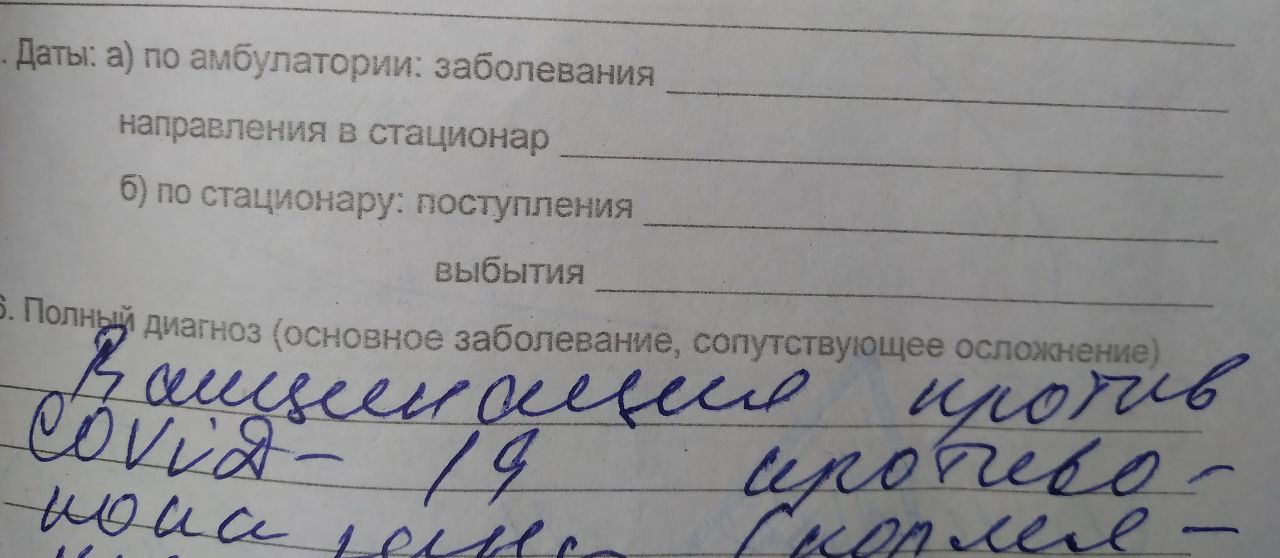 . Даты: а) по амбулатории: заболевания
направления в стационар
б) по стационару: поступления
выбытия
6. Полный диагноз (основное заболевание, сопутствующее осложнение)
Вакцинация против
COVID - 19 противо-
пока